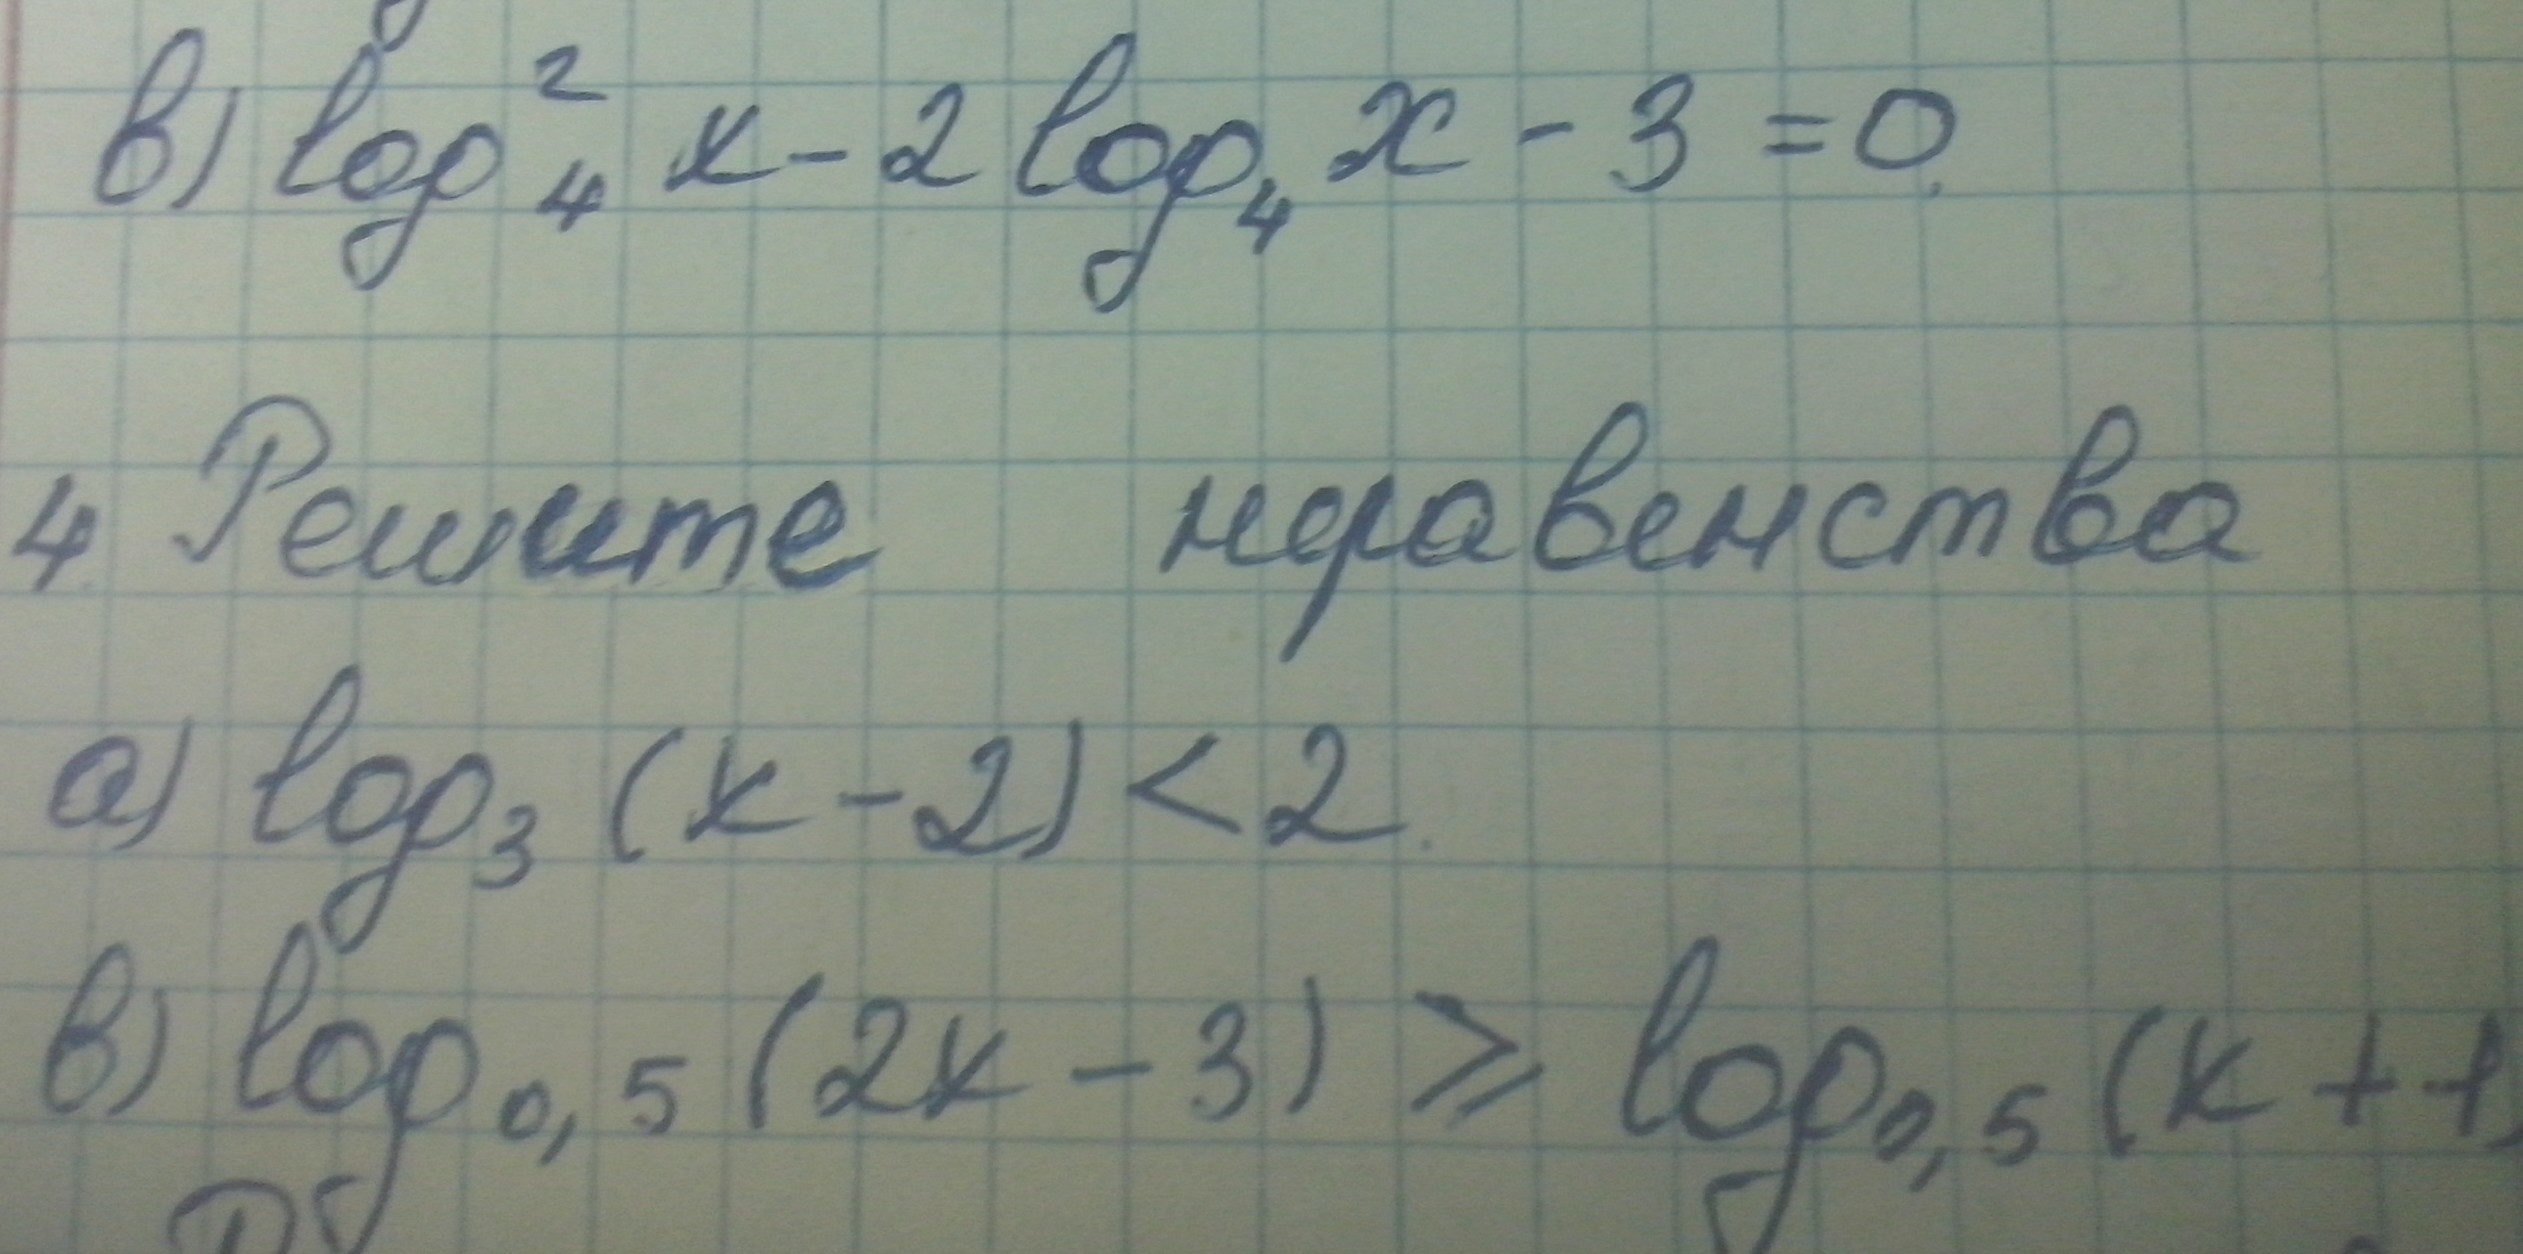 в) log₄² x - 2 log₄ x - 3 = 0
4 Решите неравенства
а) log₃ (x - 2) < 2.
в) log₀,₅ (2x - 3) ⩾ log₀,₅ (x + 1)